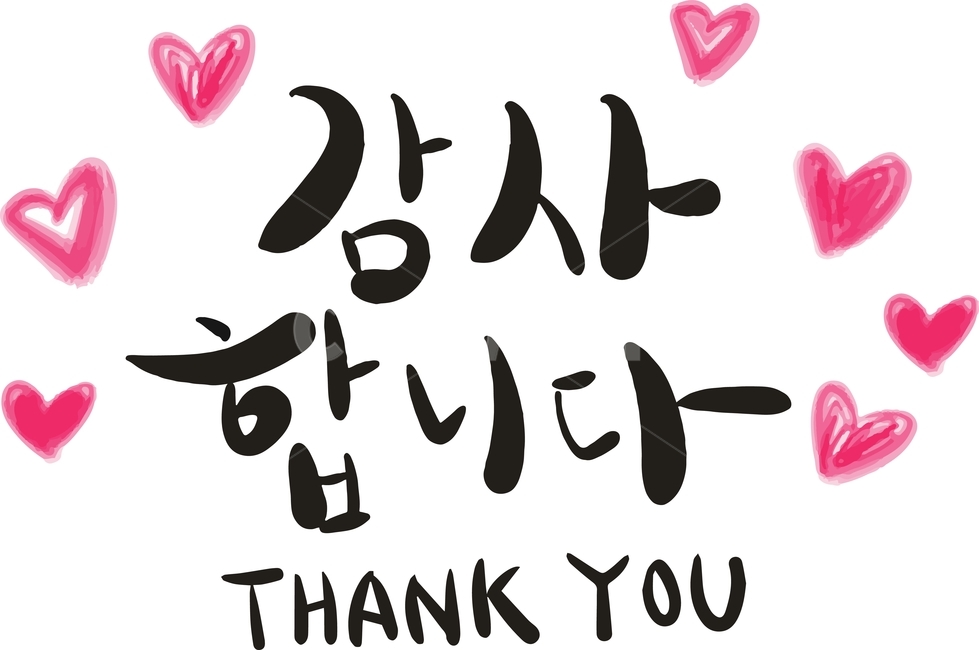 감사
합니다
THANK YOU